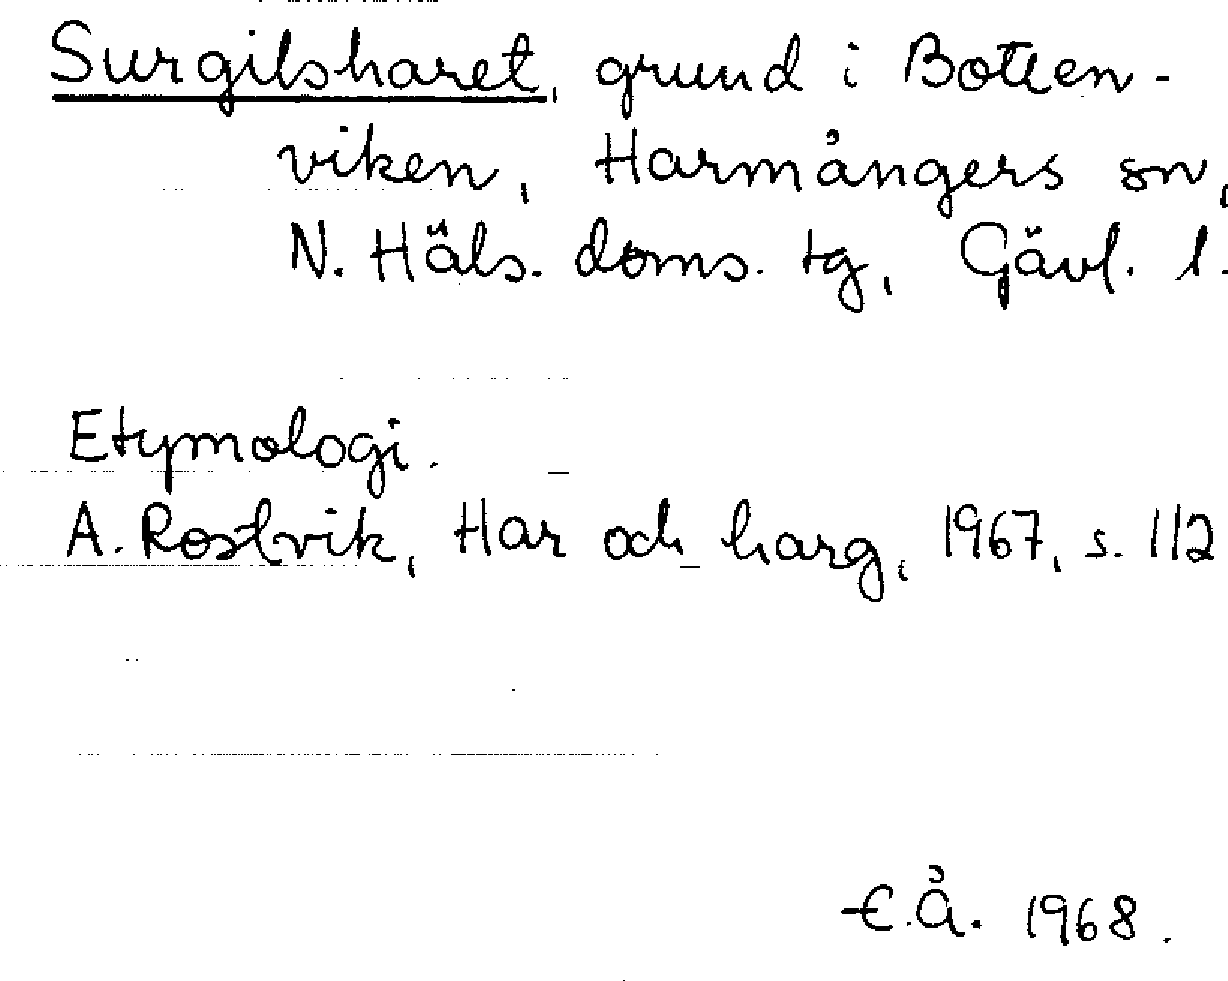 Surgilsharet, grund i Botten-
viken, Harmångers sn,
N. Häls. doms. tg, Gävl. l.
Etymologi.
A. Rostvik, Har och harg, 1967, s. 112
E.Å. 1968.